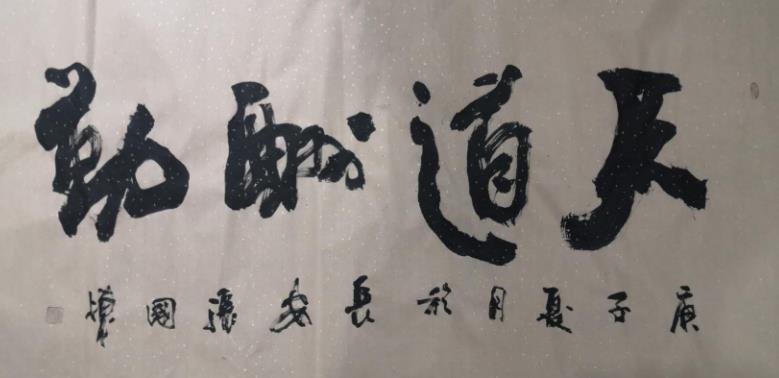 天道酬勤
庚子夏月於長安張國